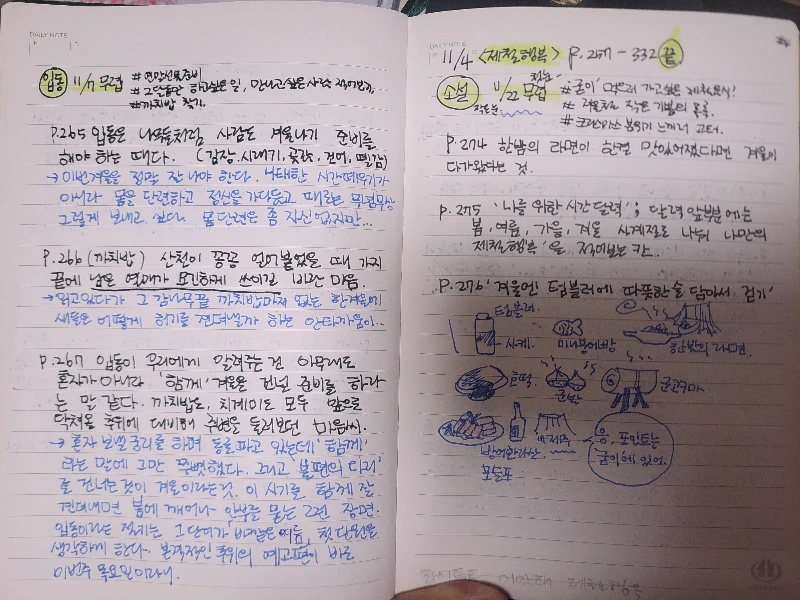 DAILY NOTE
입동 11/7 무렵 # 연말선물준비
# 그만둘만 하고싶은 일, 만나고싶은 사람 적어보기
# 까치밥 찾기.
p.265 입동은 나무들처럼 사람도 겨울나기 준비를
해야 하는 때다. (김장, 시래기, 곶감, 건어, 땔감)
→ 이번겨울을 정말 잘 나야 한다. 나태한 시간때우기가
아니라 몸을 단련하고 정신을 가다듬고 때로는 무념무상
그렇게 보내고 싶다. 몸단련은 좀 자신없지만...
p.266 (까치밥) 산천이 꽁꽁 얼어붙었을 때 가지
끝에 남은 열매가 요긴하게 쓰이길 바란 마음.
→ 읽고있다가 그 감나무끝 까치밥마저 없는 한겨울에
새들은 어떻게 허기를 견뎌낼까 하는 안타까움이...
p.267 입동이 우리에게 알려주는 건 아무래도
혼자가 아니라 '함께' 겨울을 건널 준비를 하라
는 말 같다. 까치밥도, 치계미도 모두 앞으로
닥쳐올 추위에 대비해 주변을 둘러보던 마음씨.
→ 혼자 보낼 궁리를 하며 동굴파고 있는데 '함께'
라는 말에 그만 뜨끔했다. 그리고 불편의 다리
를 건너는것이 겨울이라는것. 이 시기를 함께 잘
견뎌내면 봄에 깨어나 안부를 묻는 그런 장면.
입동이라는 절기는 그 단어가 바깥은 여름, 첫 단원을
생각하게 한다. 본격적인 추위의 예고편이 바로
이번주 목요일이라니.
DAILY NOTE
11/4 <제철행복> p.247 - 332 끝.
소설 11/22 무렵 # 굳이 먼데로 가고싶은 제철음식
작은눈 # 겨울로 작은 기쁨의 목록
# 크리스마스 분위기 느끼러 고터.
p.274 한밤의 라면이 한결 맛있어졌다면 겨울이
다가왔다는 것.
p.275 '나를 위한 시간 달력' ; 달력 앞부분에는
봄, 여름, 가을, 겨울 사계절로 나눠 나만의
제철행복을 적어보는 칸.
p.276 '겨울엔 텀블러에 따뜻한 술 담아서 걷기'
텀블러.
사케. 미니붕어빵 한밤의 라면.
호떡. 군밤 군고구마
방어와 과산 포장마차
모듬포
응, 포인트는
굳이에 있어.